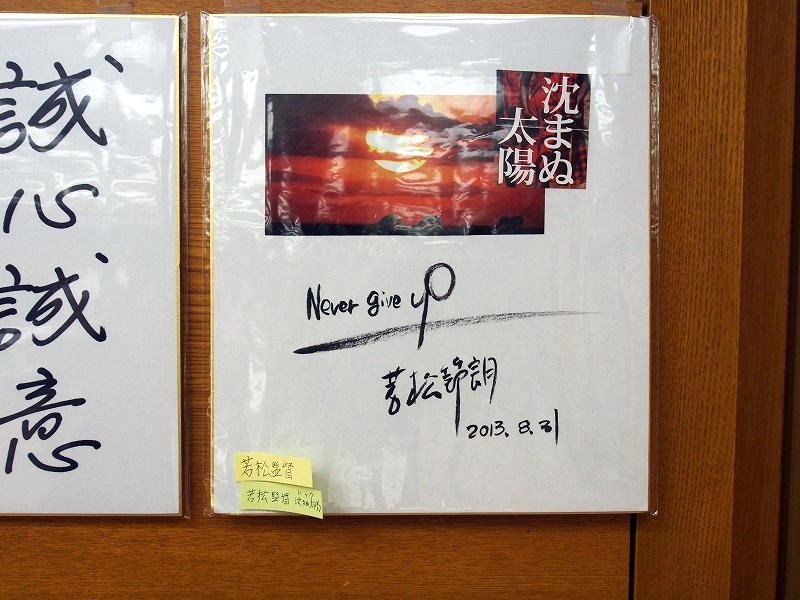 誠心誠意
沈まぬ
太陽
Never give up
若松節朗
2013. 8. 31
若松監督
若松監督